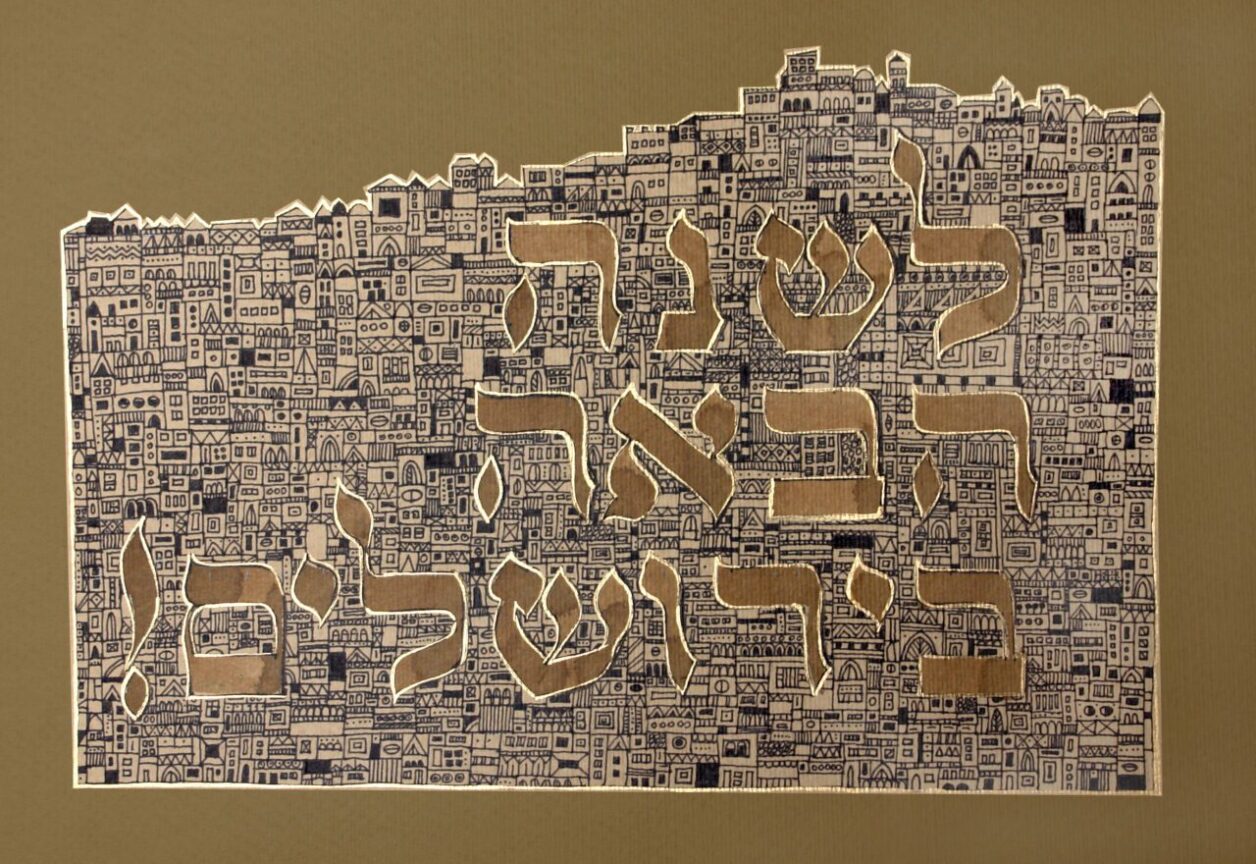 לשנה
הבאה
בירושלים!